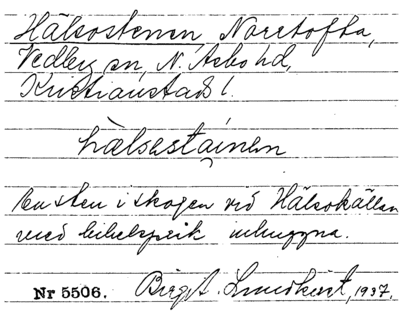 Hälsostenen, Noretofta,
Vedby sn, N. Åsbo hd,
Kristianstads l.
hælsestainen
En sten i skogen vid Hälsokällan
med bibelspråk
Nr 5506. Birgit Lindkvist, 1937.